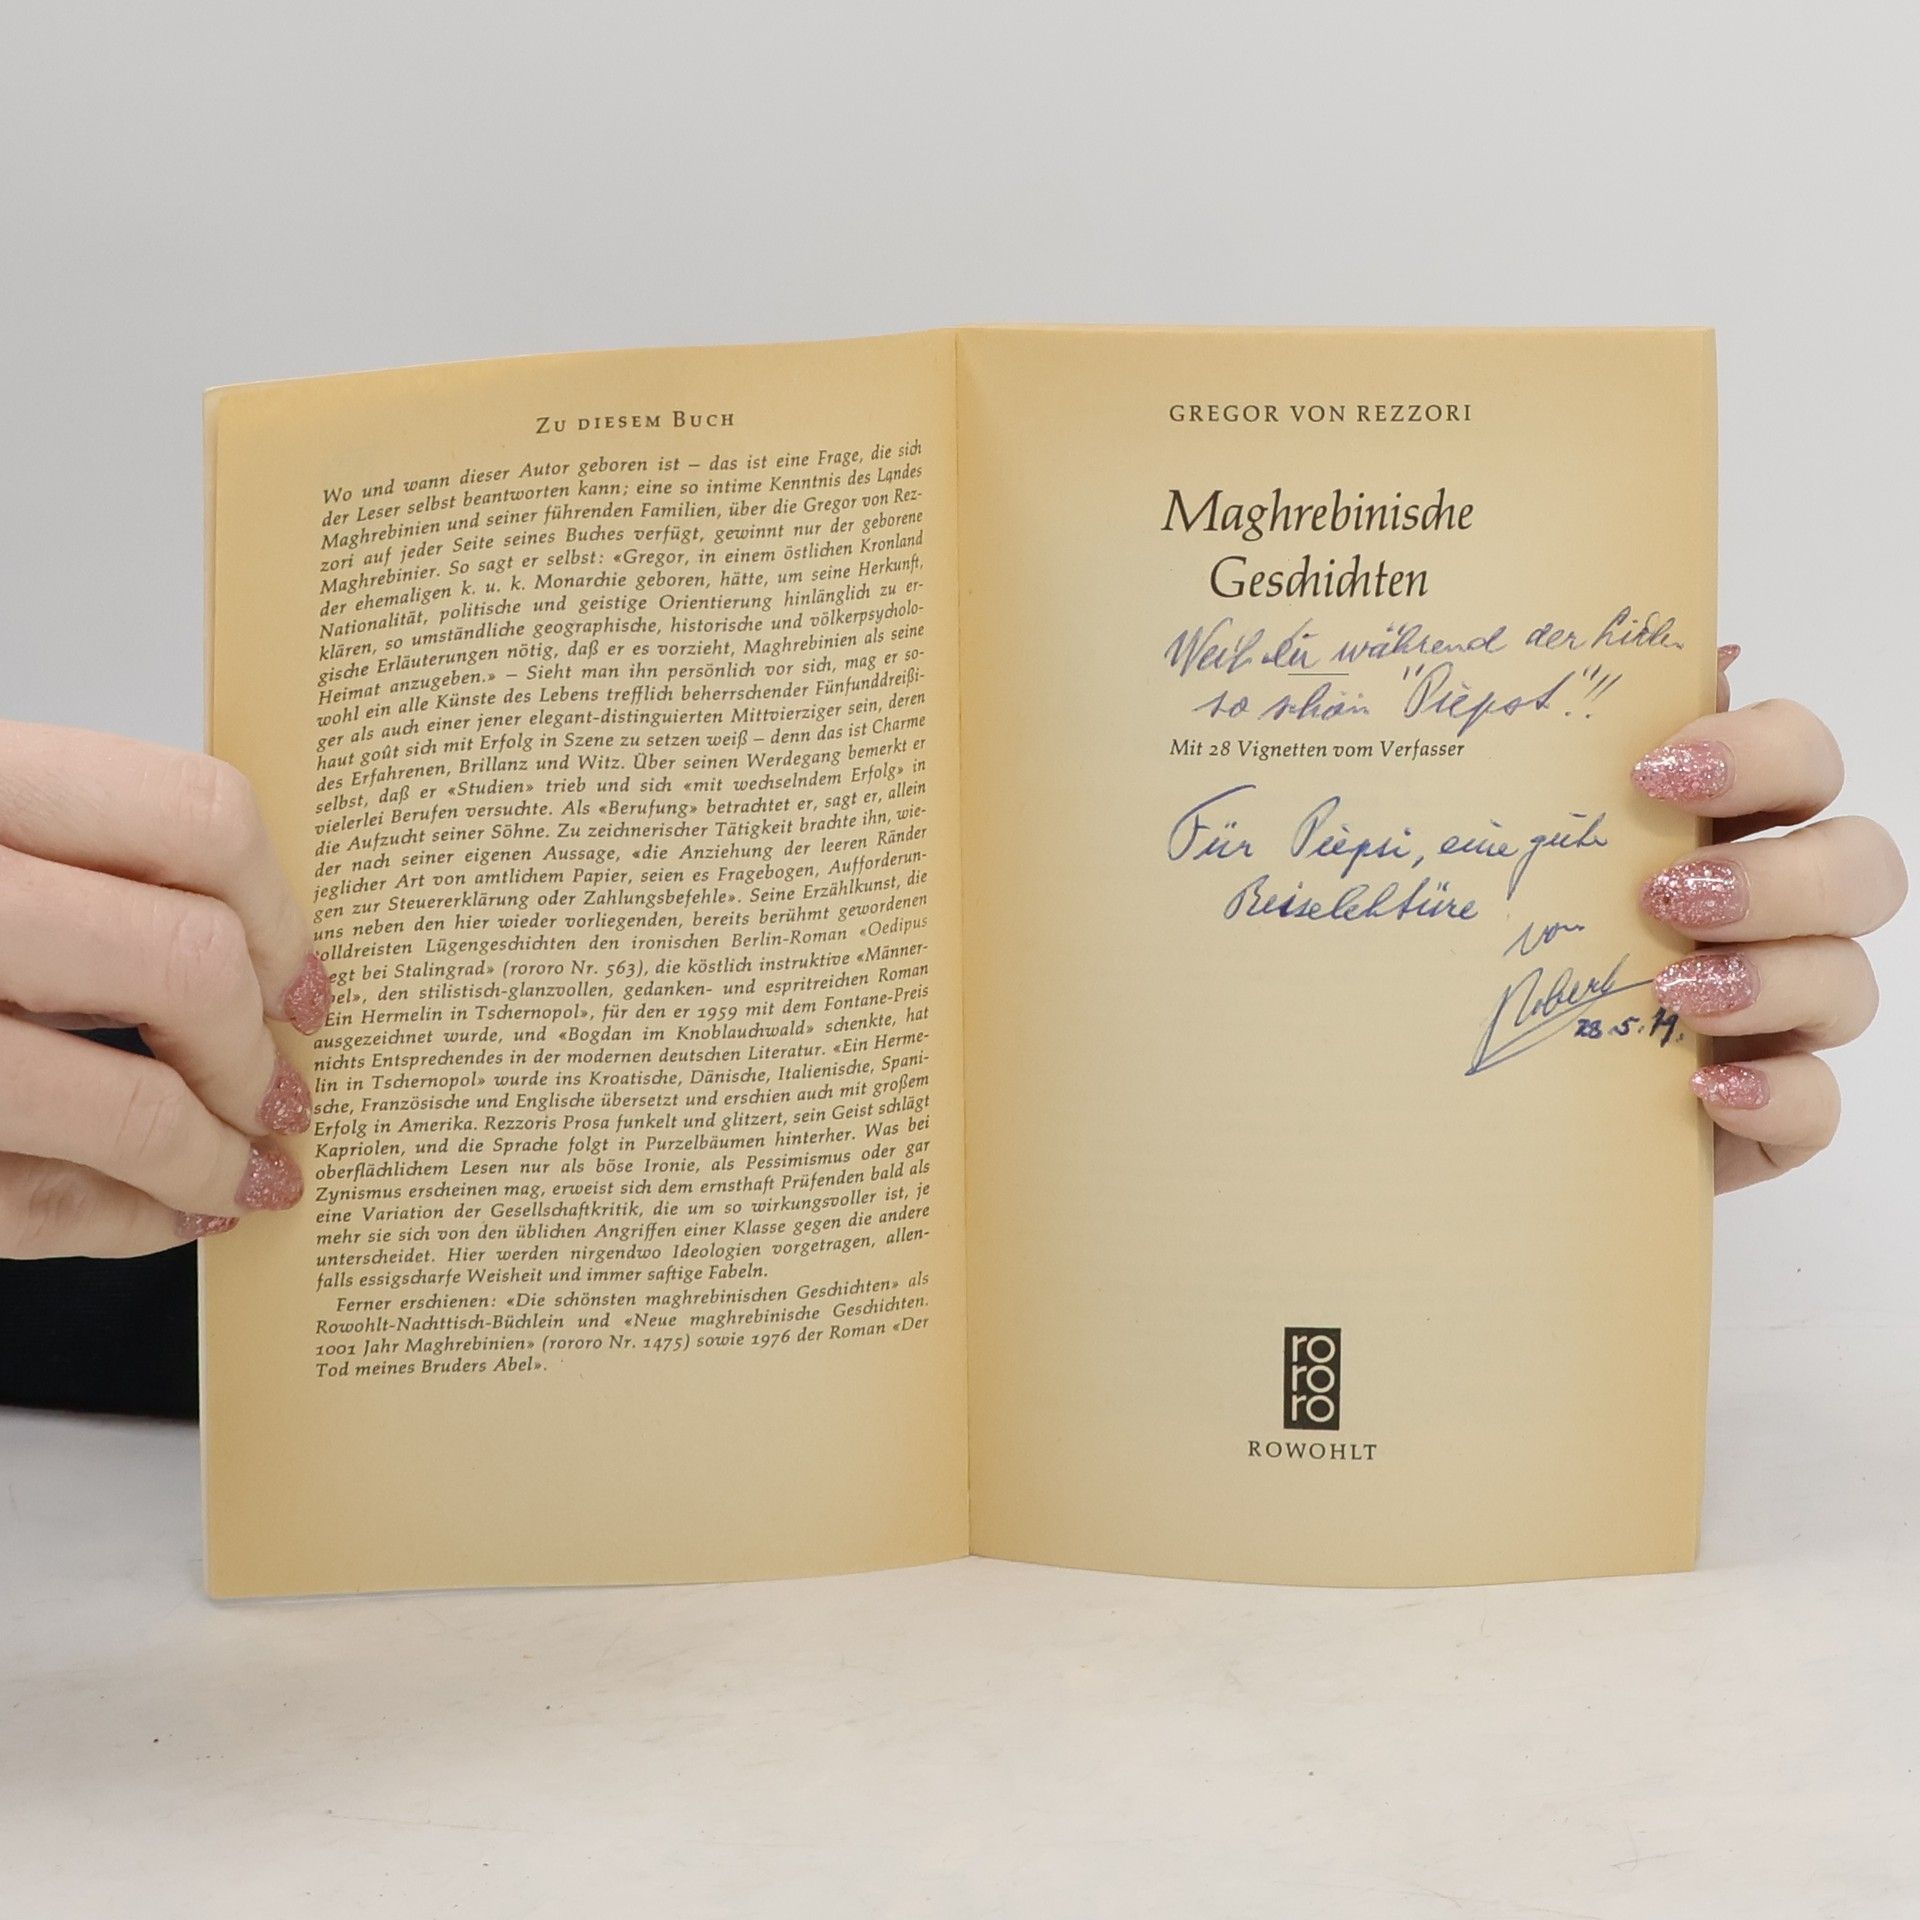 ZU DIESEM BUCH
Wo und wann dieser Autor geboren ist – das ist eine Frage, die sich
der Leser selbst beantworten kann; eine so intime Kenntnis des Landes
Maghrebinien und seiner führenden Familien, über die Gregor von Rez-
zori auf jeder Seite seines Buches verfügt, gewinnt nur der geborene
Maghrebinier. So sagt er selbst: «Gregor, in einem östlichen Kronland
der ehemaligen k. u. k. Monarchie geboren, hätte, um seine Herkunft,
Nationalität, politische und geistige Orientierung hinlänglich zu er-
klären, so umständliche geographische, historische und völkerpsycholo-
gische Erläuterungen nötig, daß er es vorzieht, Maghrebinien als seine
Heimat anzugeben.» – Sieht man ihn persönlich vor sich, mag er so-
wohl ein alle Künste des Lebens trefflich beherrschender Fünfunddreißi-
ger als auch einer jener elegant-distinguierten Mittvierziger sein, deren
haut goût sich mit Erfolg in Szene zu setzen weiß – denn das ist Charme
des Erfahrenen, Brillanz und Witz. Über seinen Werdegang bemerkt er
selbst, daß er «Studien» trieb und sich «mit wechselndem Erfolg» in
vielerlei Berufen versuchte. Als «Berufung» betrachtet er, sagt er, allein
die Aufzucht seiner Söhne. Zu zeichnerischer Tätigkeit brachte ihn, wie-
der nach seiner eigenen Aussage, «die Anziehung der leeren Ränder
jeglicher Art von amtlichem Papier, seien es Fragebogen, Aufforderun-
gen zur Steuererklärung oder Zahlungsbefehle». Seine Erzählkunst, die
uns neben den hier wieder vorliegenden, bereits berühmt gewordenen
tolldreisten Lügengeschichten den ironischen Berlin-Roman «Oedipus
egt bei Stalingrad» (rororo Nr. 563), die köstlich instruktive «Männer-
bel», den stilistisch-glanzvollen, gedanken- und espritreichen Roman
Ein Hermelin in Tschernopol», für den er 1959 mit dem Fontane-Preis
ausgezeichnet wurde, und «Bogdan im Knoblauchwald» schenkte, hat
nichts Entsprechendes in der modernen deutschen Literatur. «Ein Herme-
lin in Tschernopol» wurde ins Kroatische, Dänische, Italienische, Spani-
sche, Französische und Englische übersetzt und erschien auch mit großem
Erfolg in Amerika. Rezzoris Prosa funkelt und glitzert, sein Geist schlägt
Kapriolen, und die Sprache folgt in Purzelbäumen hinterher. Was bei
oberflächlichem Lesen nur als böse Ironie, als Pessimismus oder gar
Zynismus erscheinen mag, erweist sich dem ernsthaft Prüfenden bald als
eine Variation der Gesellschaftkritik, die um so wirkungsvoller ist, je
mehr sie sich von den üblichen Angriffen einer Klasse gegen die andere
unterscheidet. Hier werden nirgendwo Ideologien vorgetragen, allen-
falls essigscharfe Weisheit und immer saftige Fabeln.
Ferner erschienen: «Die schönsten maghrebinischen Geschichten» als
Rowohlt-Nachttisch-Büchlein und «Neue maghrebinische Geschichten.
1001 Jahr Maghrebinien» (rororo Nr. 1475) sowie 1976 der Roman «Der
Tod meines Bruders Abel».
GREGOR VON REZZORI
Maghrebinische
Geschichten
Weil du während der
so schön "Piepst"!!
Mit 28 Vignetten vom Verfasser
Für Piepsi, eine gute
Reiselektüre
von
Robert
28.5.79.
ro
ro
ro
ROWOHLT